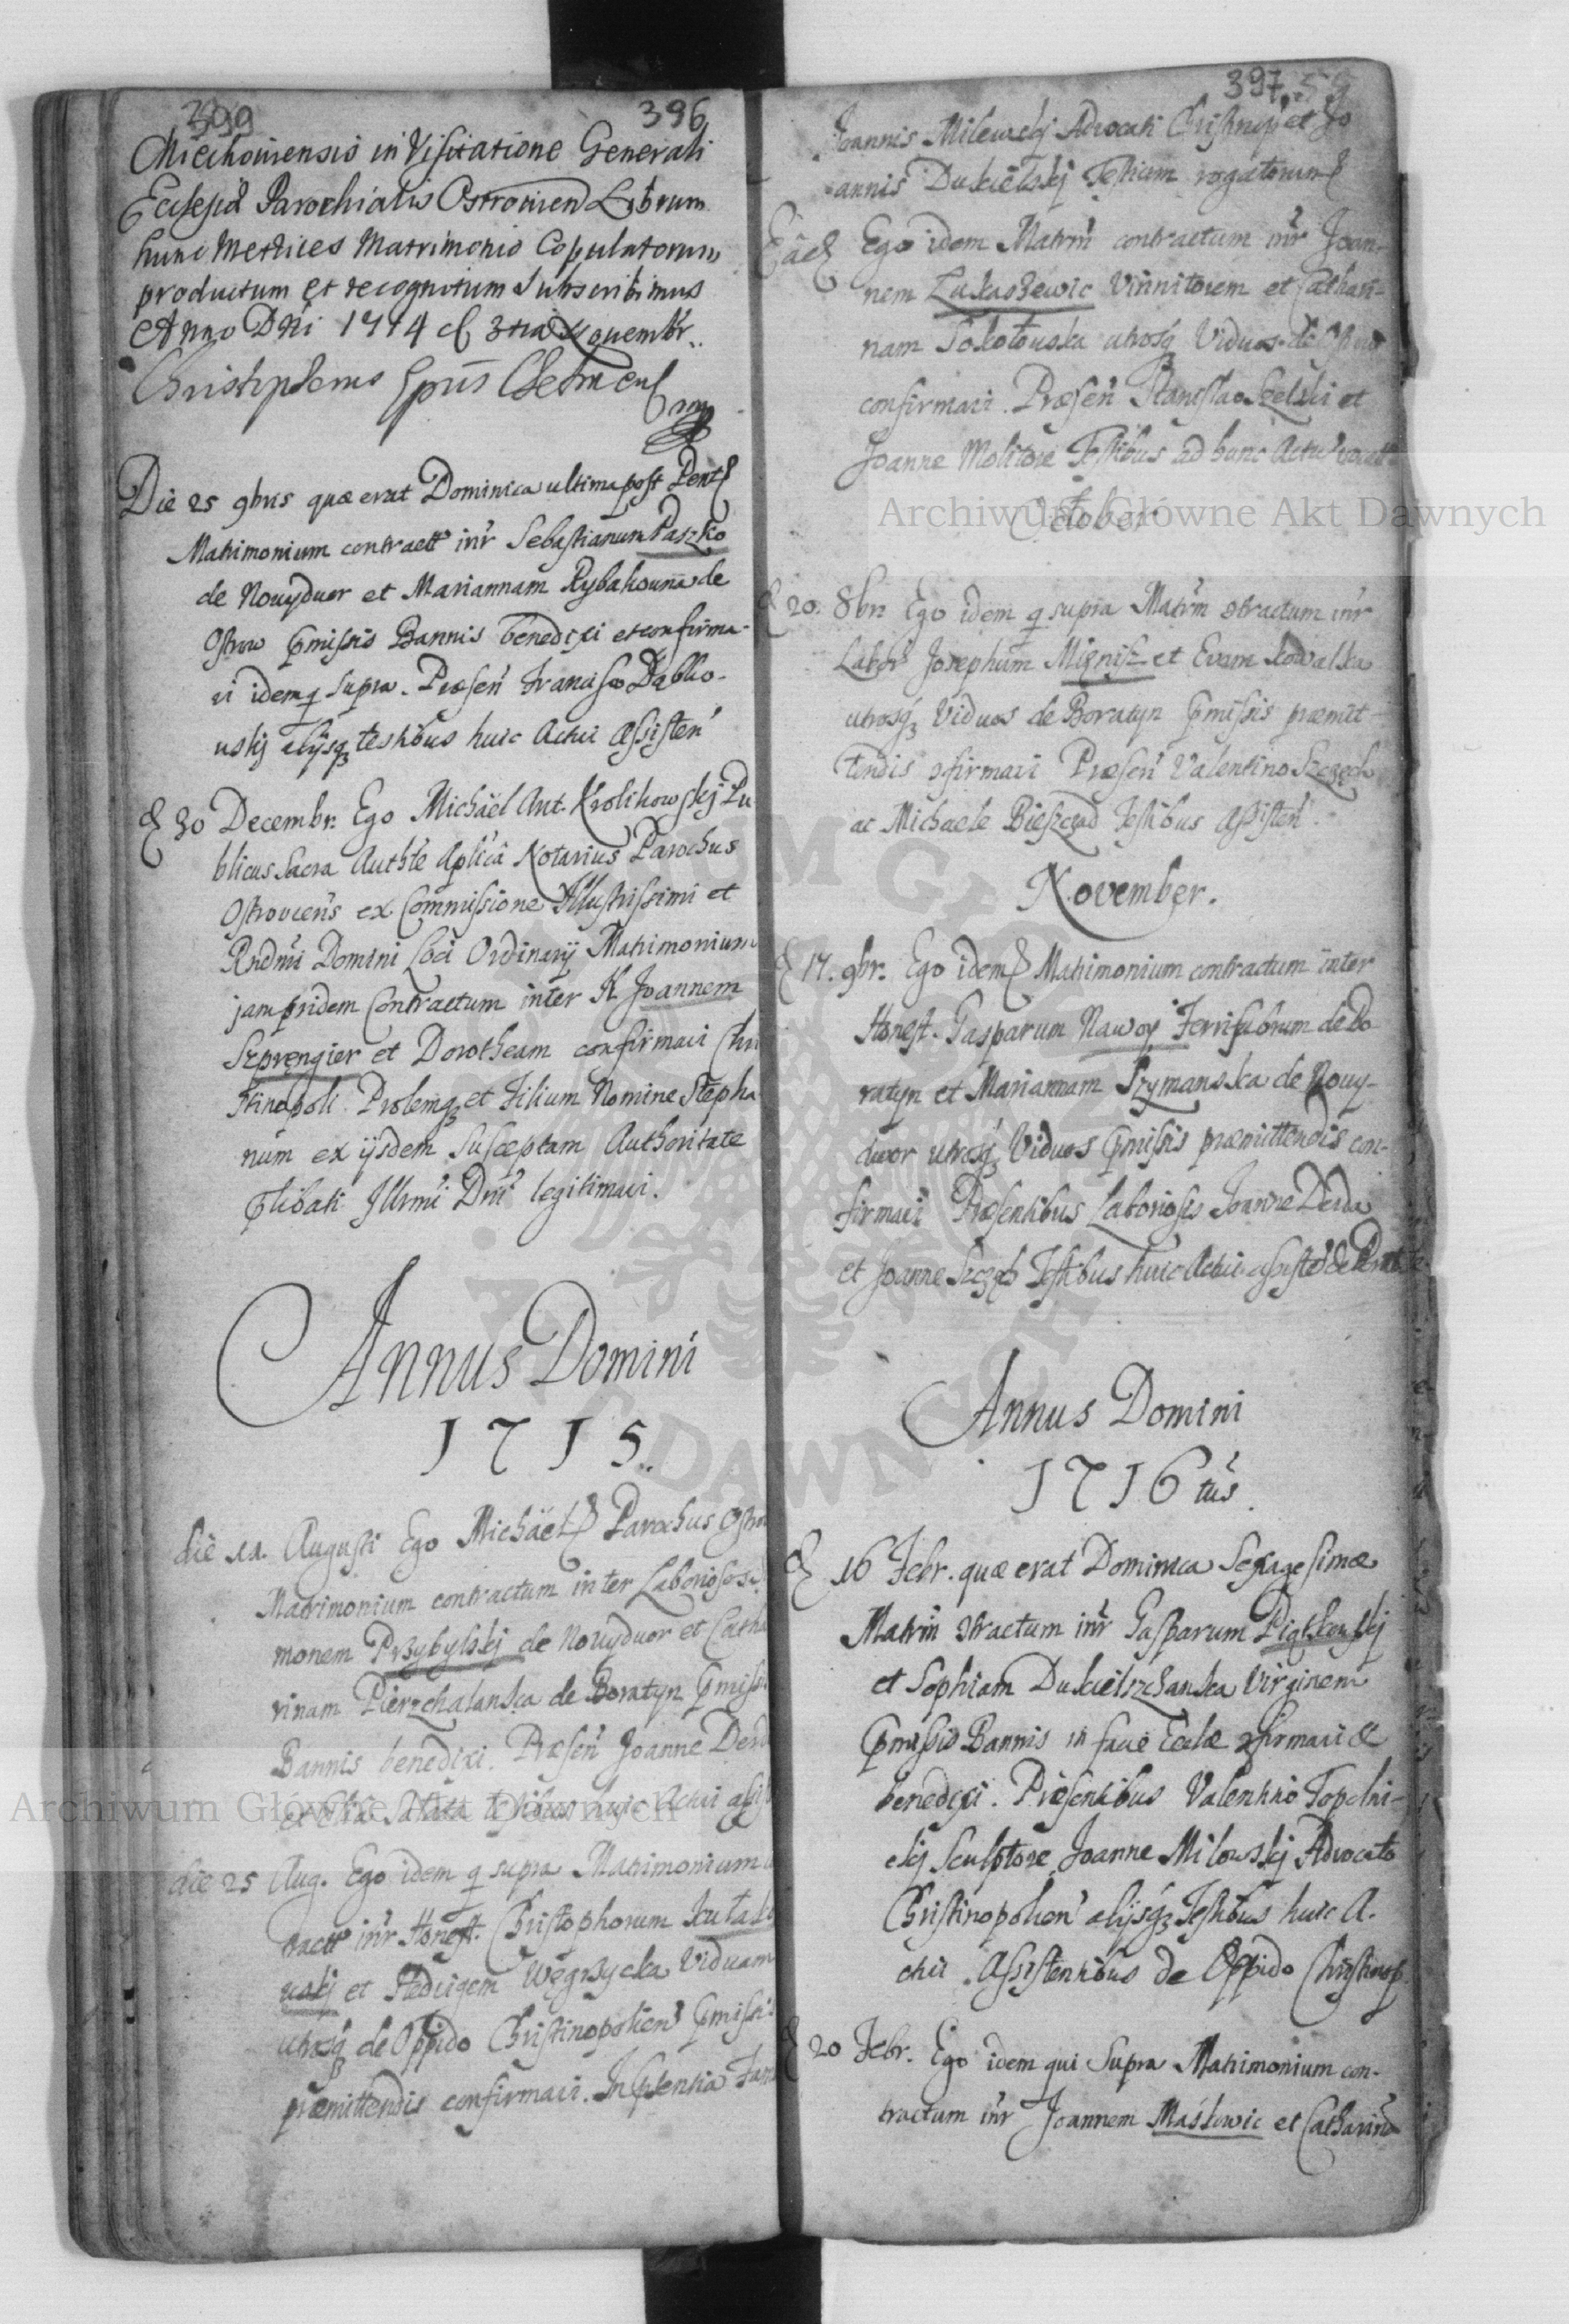 399 396
Miechoviensis in Visitatione Generali
Ecclesiæ Parochialis Ostrovien Librum
hunc Metrices Matrimonio Copulatorum
productum et recognitum Subscribimus
Anno Dni 1714 3tia Novembr.
Christophorus Eppus Chelmen
Die 25 9bris quæ erat Dominica ultima post Pent
Matrimonium contractt inr Sebastianum Paszko
de Nouydwor et Mariannam Rybakouna de
Ostrow pmissis Bannis benedixi et confirma-
vi idem q supra. Præsen Francisco Dąbko-
uskj alijsq testibus huic Actui Assisten
30 Decembr. Ego Michäel Ant. Krolikowskj Pu
blicus Sacra Authte Aplica Notarius Parochus
Ostroviens ex Commissione Illustrissimi et
Rndmi Domini Loci Ordinarij Matrimonium
jam pridem Contractum inter H Joannem
Szprengier et Dorotheam confirmavi Chri
stinopoli. Prolemq et Filium Nomine Stepha
num ex ijsdem Susceptam Authoritate
plibati Illrmi Dni legitimavi.
Annus Domini
1715.
die 11. Augusti Ego Michäel Parochus Ostro
Matrimonium contractum inter Laboriosos
monem Przybylskj de Nouyduor et Catha
rinam Pierzchalanska de Boratyn pmiss
Bannis benedixi. Præsen Joanne Derd
testibus huic Actui assist
die 25 Aug. Ego idem q supra Matrimonium
tractt inr Honest. Christophorum
uskj et Hedvigem Węgrzycka Viduam
utrosq de Oppido Christinopolien pmissis
præmittendis confirmavi. In psentia Fam
397 59
Joannis Milewskj Advocati Christinop et Jo
annis Dukielskj Testium rogatorum
Eâd Ego idem Matrm contractum inr Joan-
nem Łukaszewic Vinnitorem et Cathari-
nam Sokołouska utrosq Viduos de Ostrow
confirmavi. Præsen Stanislao Szelski et
Joanne Molitore Testibus ad hunc Actu vocatt
October
20. 8br Ego idem q supra Matrm contractum inr
Labor Josephum Mięnisz et Evam Kowalska
utrosq Viduos de Boratyn pmissis præmit-
tendis cfirmavi Præsen Valentino Szczech
ac Michaele Bieszczad Testibus Assisten.
November.
17. 9br. Ego idem Matrimonium contractum inter
Honest. Gasparum Nawoy Ferrifabrum de Bo
ratyn et Mariannam Szymanska de Nouy-
dwor utrosq Viduos pmissis præmittendis con-
firmavi Præsentibus Laboriosis Joanne Derda
et Joanne Szczęch Testibus huic Actui assisten
Annus Domini
1716 tus.
16 Febr. quæ erat Dominica Sexagesimæ
Matrm ctractum inr Gasparum Piątkowskj
et Sophiam Dukielszczanska Virginem
pmissis Bannis in facie Ecclæ cfirmavi &
benedixi. Præsentibus Valentino Topolni-
ckj Sculptore Joanne Milowskj Advocato
Christinopolien alijsq Testibus huic A.
ctui Assistentibus de Oppido Christinop.
20 Febr. Ego idem qui Supra Matrimonium con-
tractum inr Joannem Masłowic et Catharina
Archiwum Główne Akt Dawnych
Archiwum Główne Akt Dawnych